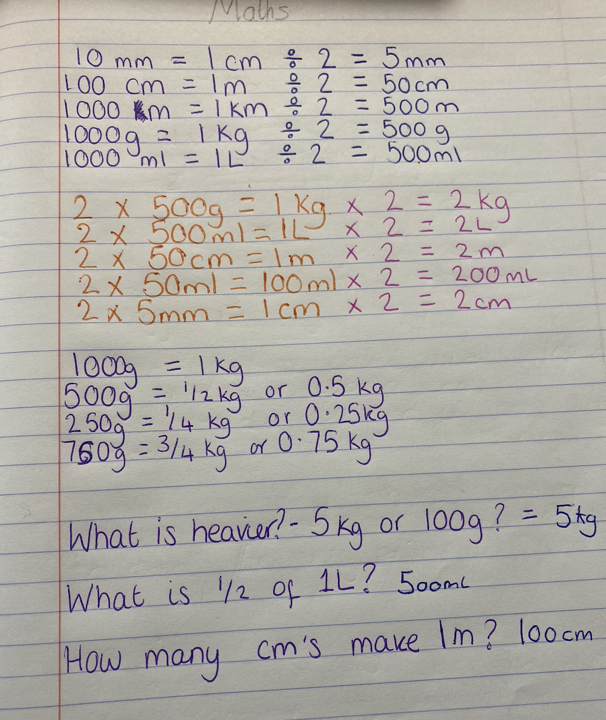 Maths
10 mm = 1 cm ÷ 2 = 5mm
100 cm = 1m ÷ 2 = 50cm
1000 m = 1km ÷ 2 = 500m
1000g = 1 kg ÷ 2 = 500 g
1000 ml = 1L ÷ 2 = 500ml
2 x 500g = 1 Kg x 2 = 2 kg
2 x 500ml = 1L x 2 = 2L
2 x 50cm = 1m x 2 = 2m
2 x 50ml = 100ml x 2 = 200mL
2 x 5mm = 1cm x 2 = 2cm
1000g = 1 kg
500g = 1/2 kg or 0.5 kg
250g = 1/4 kg or 0.25kg
750g = 3/4 kg or 0.75 kg
What is heavier? - 5kg or 100g? = 5kg
What is 1/2 of 1L? 500mL
How many cm's make 1m? 100cm